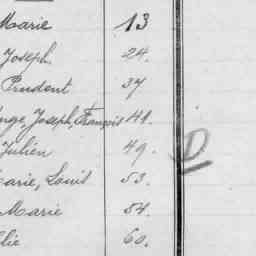 Marie 13
Joseph. 24.
Prudent 37
Ange, Joseph, François 41.
Julien 49.
Marie, Louis 53.
Marie 54.
60.
D